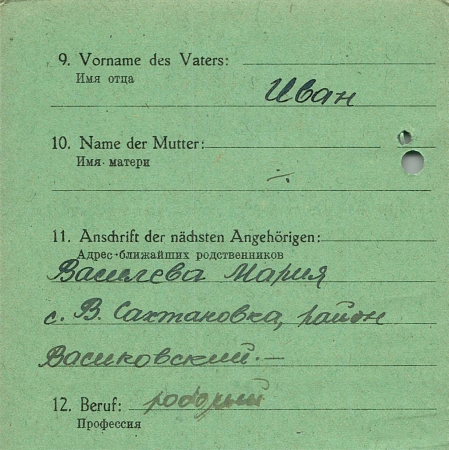 9. Vorname des Vaters:
Имя отца
Иван
10. Name der Mutter:
Имя матери
÷
11. Anschrift der nächsten Angehörigen:
Адрес ближайших родственников
Василева Мария
с. В. Сахтановка, район
Васиковский. —
12. Beruf:
Профессия